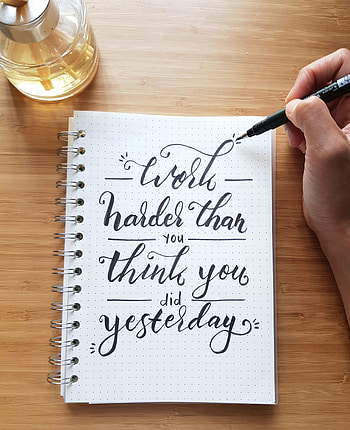 work
harder than
you
think you
did
yesterday